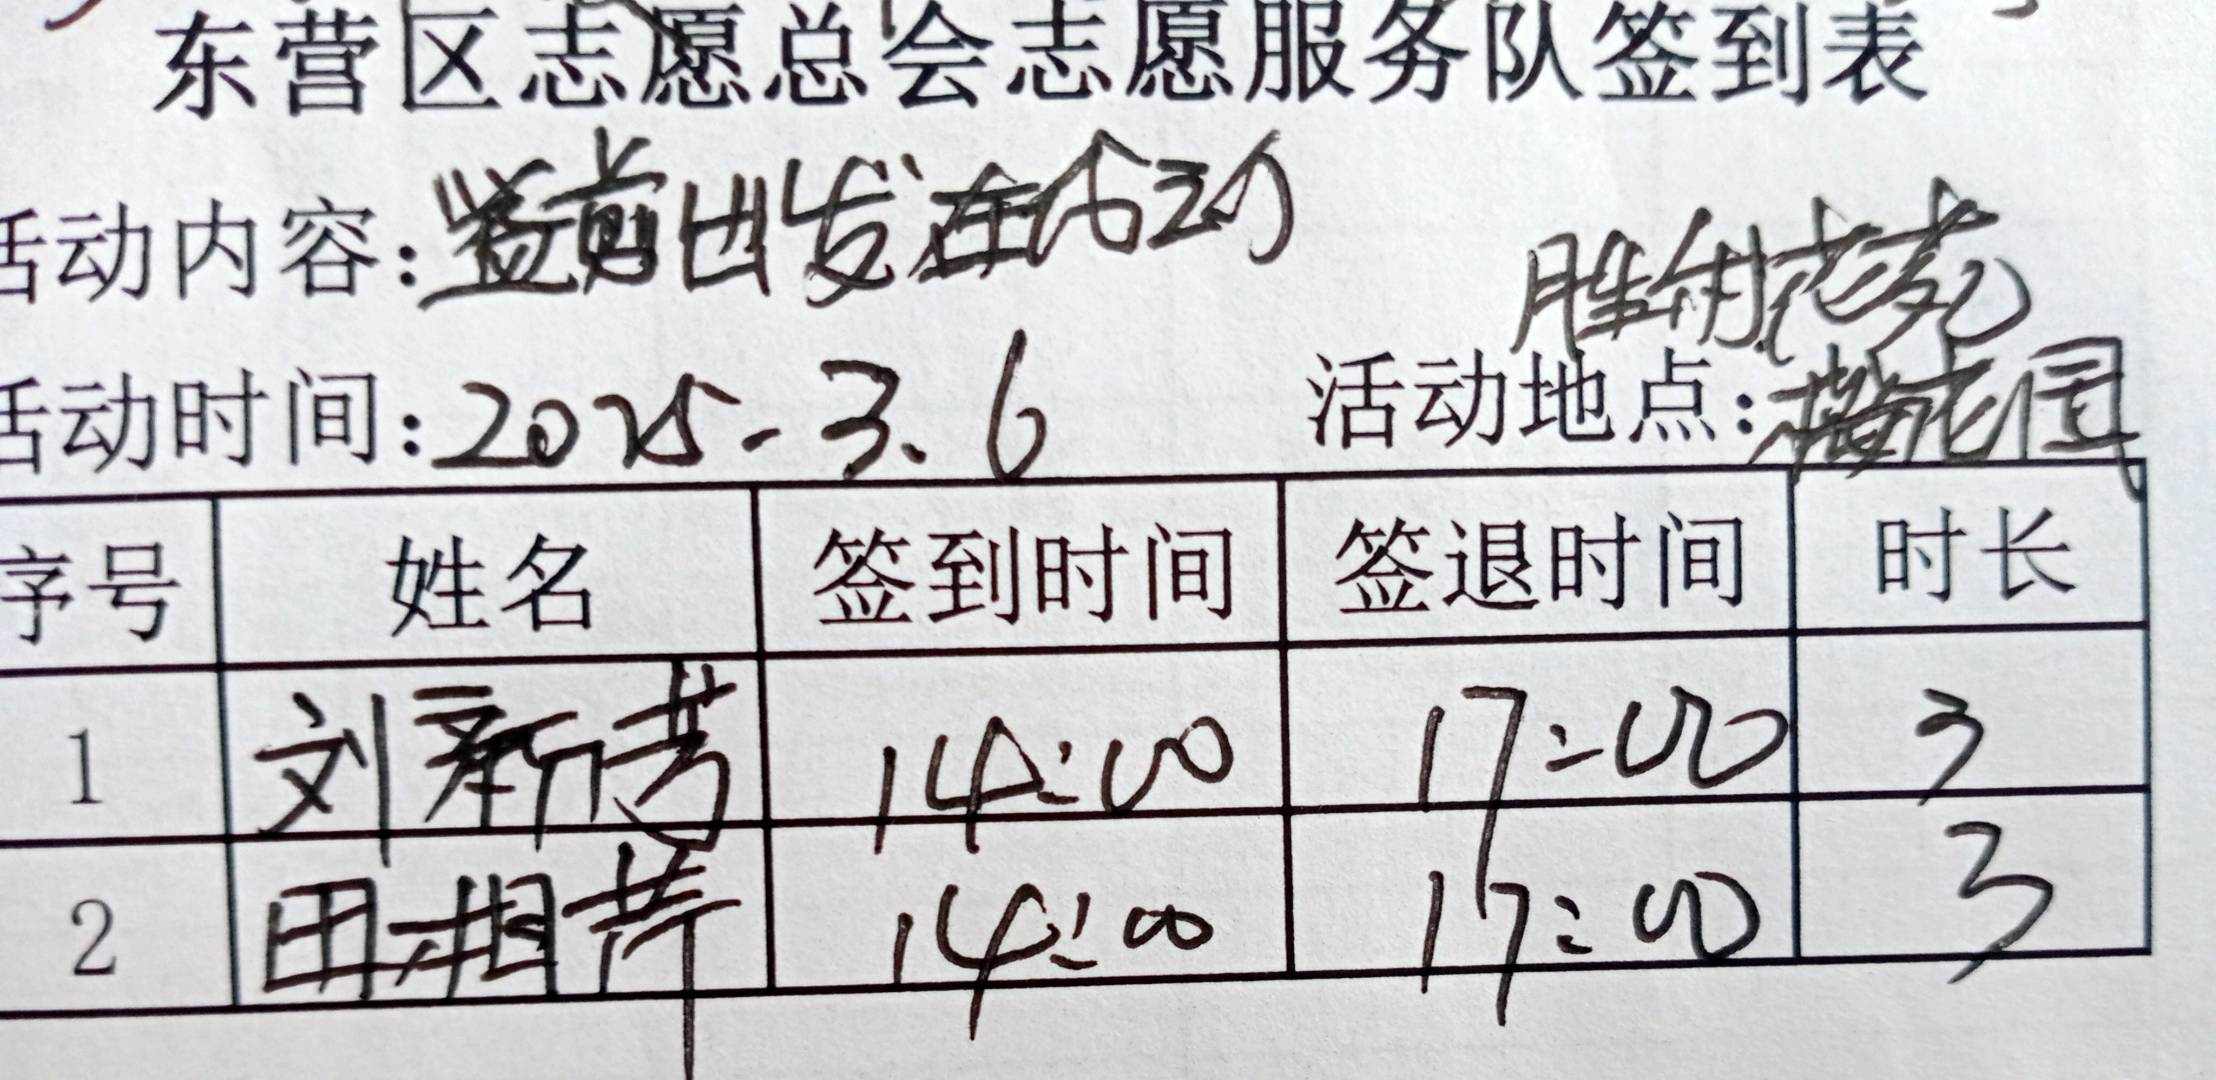 东营区志愿总会志愿服务队签到表
活动内容:益剪出发在行动
胜利花苑
活动时间:2025-3.6 活动地点:梅花园
序号 姓名 签到时间 签退时间 时长
1 刘新芳 14:00 17:00 3
2 田相芹 14:00 17:00 3